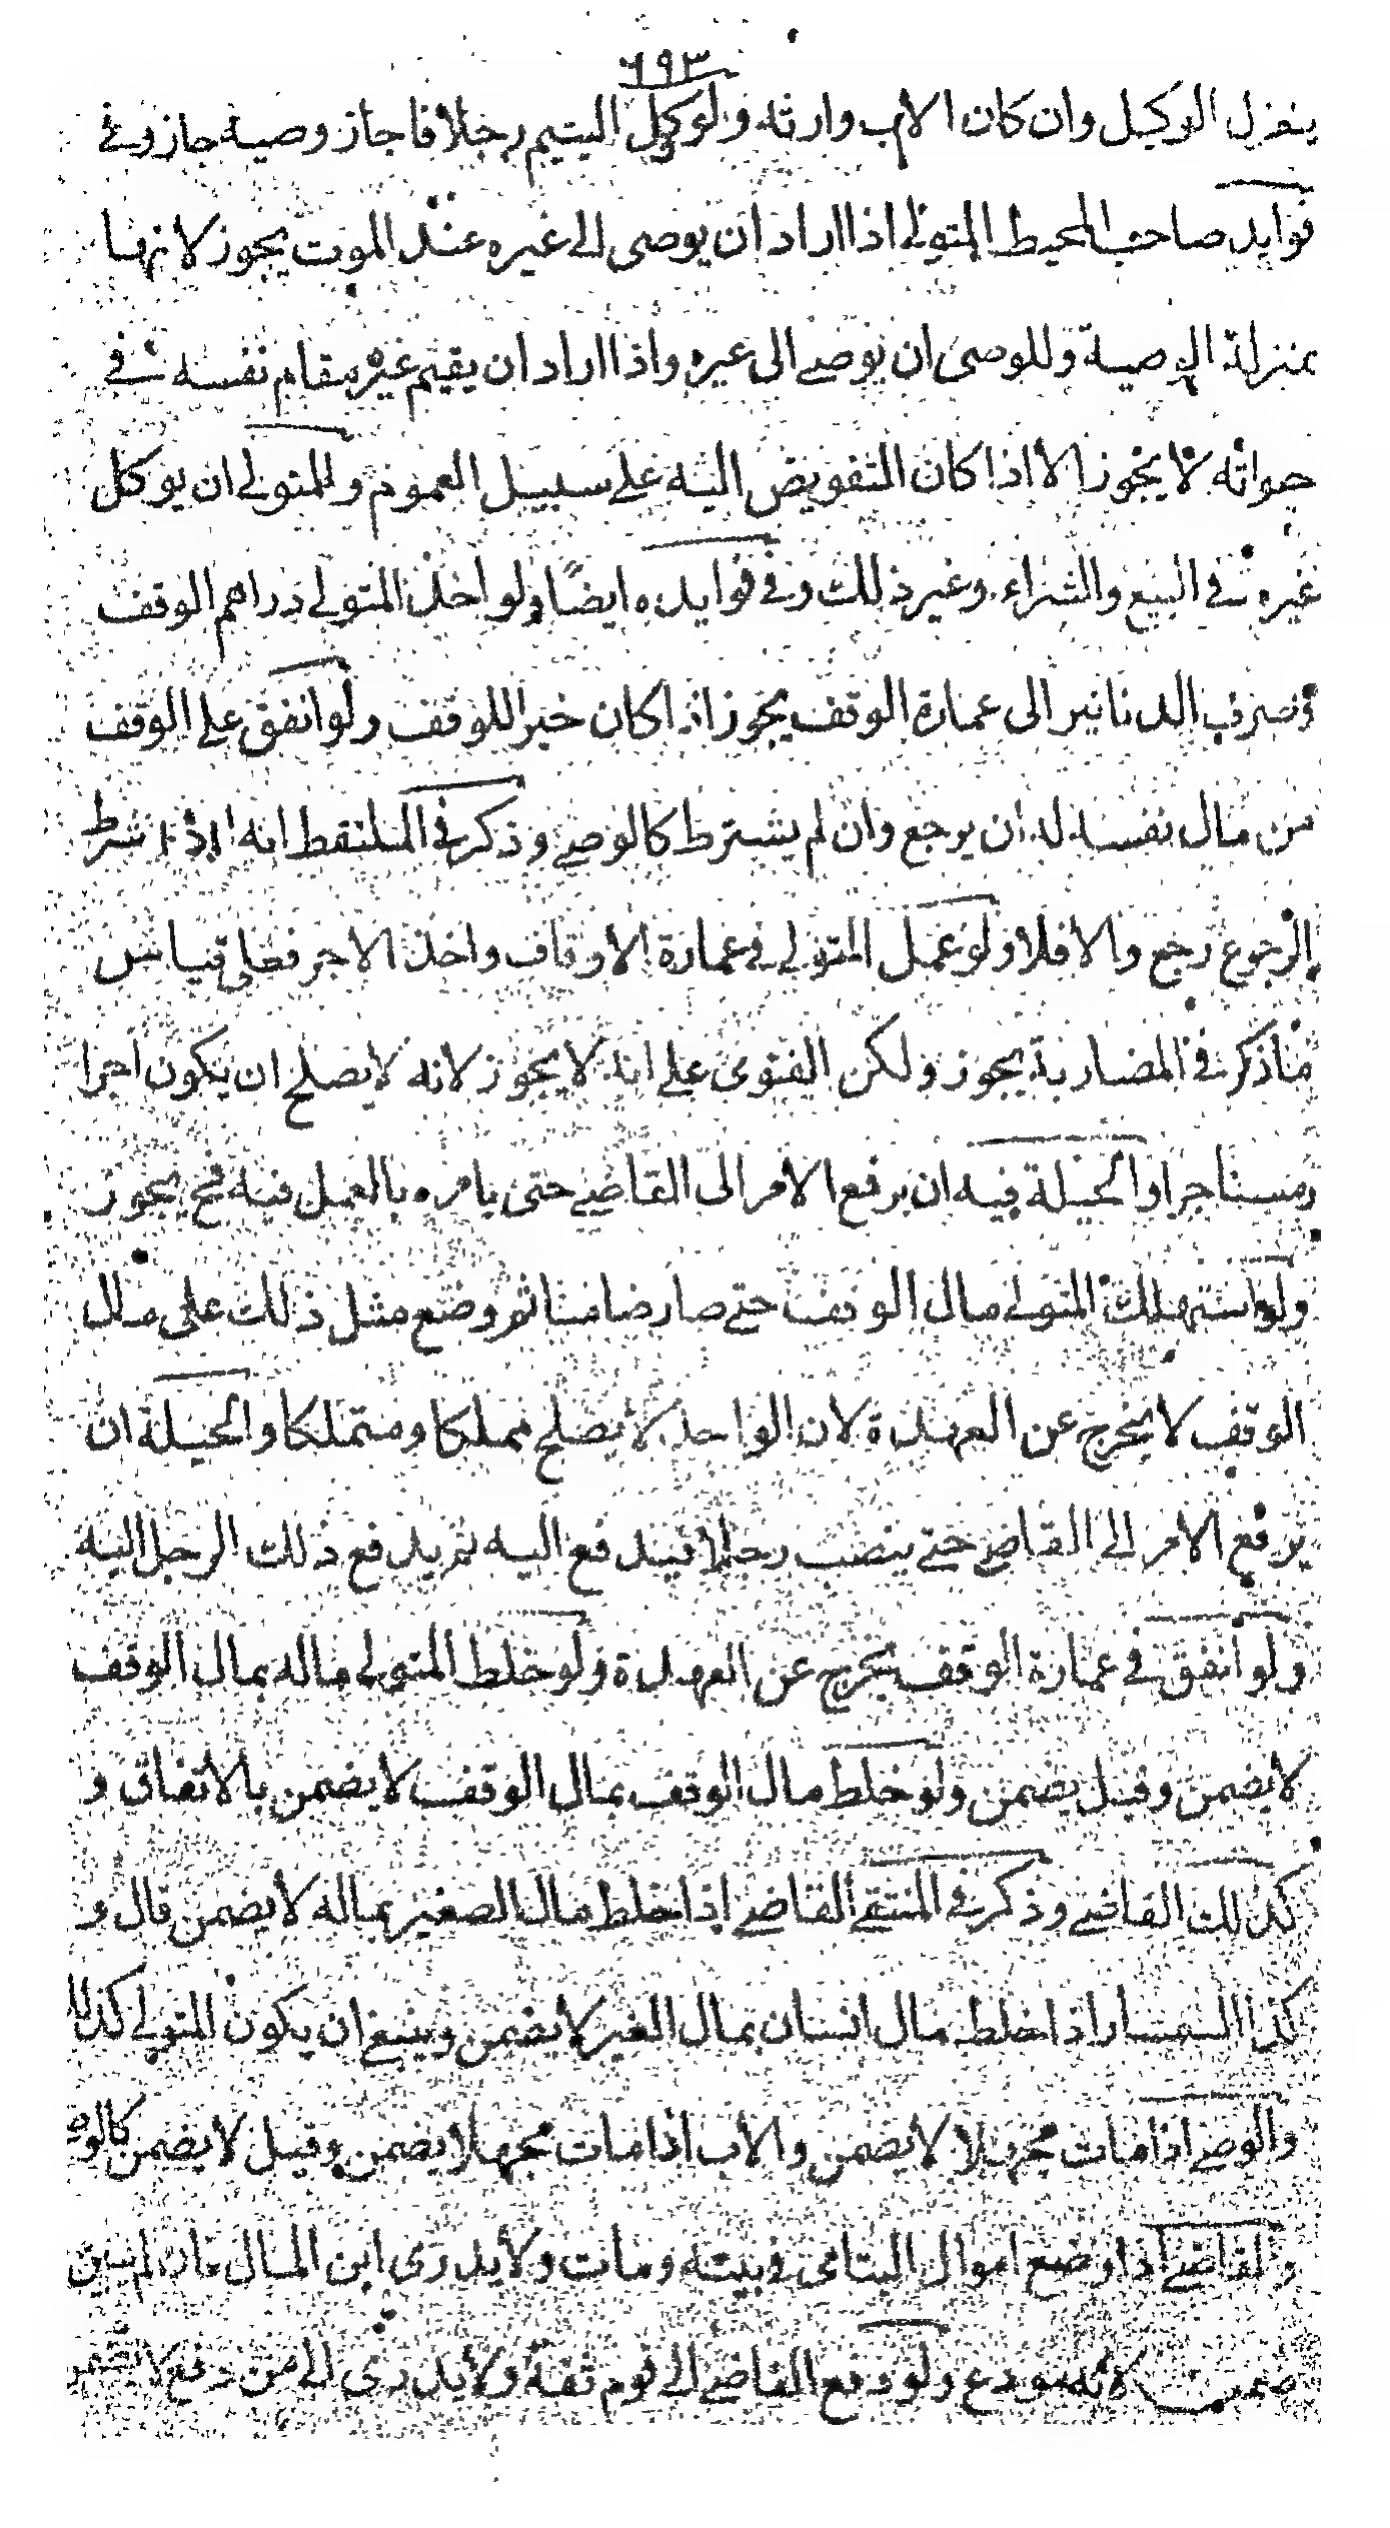 ٦٩٣
ينعزل الوكيل وان كان الاب وارثه ولو وكل اليتيم رجلا فاجاز وصيه جاز وفى
فوايد صاحب المحيط المتولى اذا اراد ان يوصى الى غيره عند الموت يجوز لانها
بمنزلة الوصية وللوصى ان يوصى الى غيره واذا اراد ان يقيم غيره مقام نفسه فى
حياته لا يجوز الا اذا كان التفويض اليه على سبيل العموم وللمتولى ان يوكل
غيره فى البيع والشراء وغير ذلك وفى فوايده ايضًا ولو اخذ المتولى دراهم الوقف
وصرف الدنانير الى عمارة الوقف يجوز اذا كان خيرا للوقف ولو انفق على الوقف
من مال نفسه له ان يرجع وان لم يشترط كالوصى وذكر فى الملتقط انه اذا شرط
الرجوع رجع والا فلا ولو عمل المتولى فى عمارة الاوقاف واخذ الاجر فعلى قياس
ما ذكر فى المضاربة يجوز ولكن الفتوى على انه لا يجوز لانه لا يصلح ان يكون اجرا
ومستاجرا والحيلة فيه ان يرفع الامر الى القاضى حتى يامره بالعمل فيه فح يجوز
ولو استهلك المتولى مال الوقف حتى صار ضامنا ثم وضع مثل ذلك على مال
الوقف لا يخرج عن العهدة لان الواحد لا يصلح مملكا ومتملكا والحيلة ان
يرفع الامر الى القاضى حتى ينصب رجلا فيدفع اليه ثم يدفع ذلك الرجل اليه
ولو انفق فى عمارة الوقف يخرج عن العهدة ولو خلط المتولى ماله بمال الوقف
لا يضمن وقيل يضمن ولو خلط مال الوقف بمال الوقف لا يضمن بالاتفاق و
كذلك القاضى وذكر فى المنتقى القاضى اذا خلط مال الصغير بماله لا يضمن قال و
كذا السمسار اذا خلط مال انسان بمال الغير لا يضمن وينبغى ان يكون المتولى كذلك
والوصى اذا مات مجهلا لا يضمن والاب اذا مات مجهلا يضمن وقيل لا يضمن كالوصى
والقاضى اذا وضع اموال اليتامى فى بيته ومات ولا يدرى اين المال فان لم يبين
ضمن لانه مودع ولو دفع القاضى الى قوم ثقة ولا يدرى الى من دفع لا يضمن